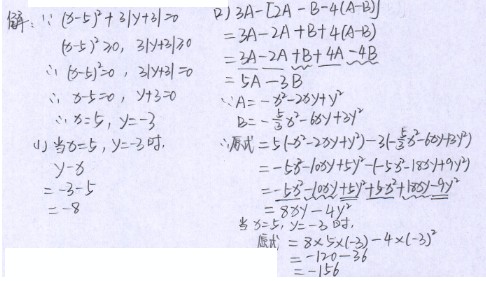 解: ∵ (x-5)²+3|y+3|=0
(x-5)²≥0, 3|y+3|≥0
∴ (x-5)²=0, 3|y+3|=0
∴ x-5=0, y+3=0
∴ x=5, y=-3
(1) 当x=5, y=-3时,
y-x
=-3-5
=-8
(2) 3A-[2A-B-4(A-B)]
=3A-2A+B+4(A-B)
=3A-2A+B+4A-4B
=5A-3B
∵A=-x²-2xy+y²
B=-5/3x²-6xy+3y²
∴原式=5(-x²-2xy+y²)-3(-5/3x²-6xy+3y²)
=-5x²-10xy+5y²-(-5x²-18xy+9y²)
=-5x²-10xy+5y²+5x²+18xy-9y²
=8xy-4y²
当x=5, y=-3时,
原式=8×5×(-3)-4×(-3)²
=-120-36
=-156